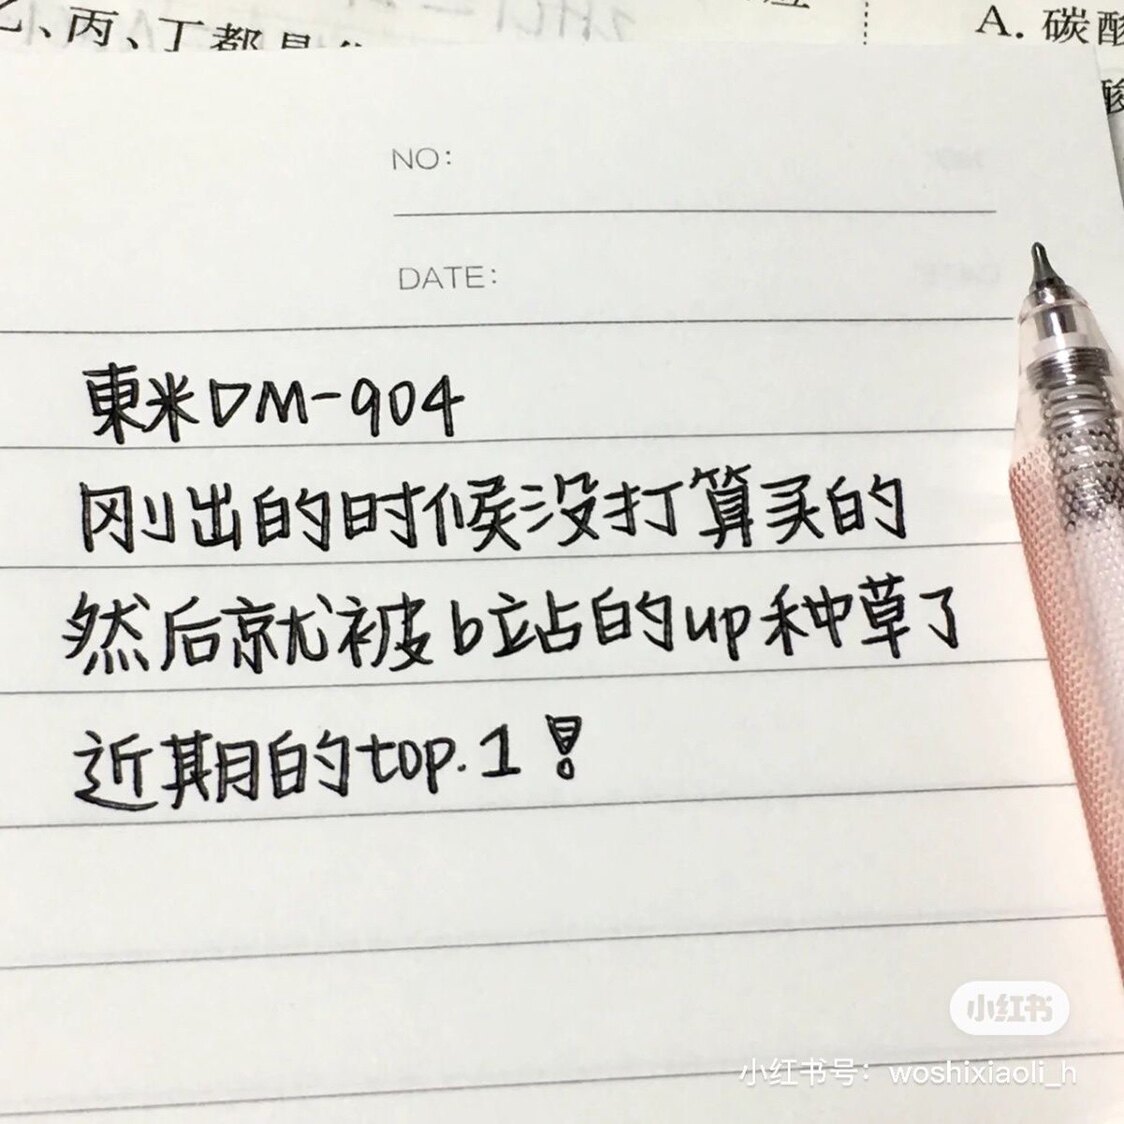 乙、丙、丁都是
A. 碳酸
酸
NO:
DATE:
東米DM-904
刚出的时候没打算买的
然后就被b站的up种草了
近期的top.1!
小红书
小红书号：woshixiaoli_h